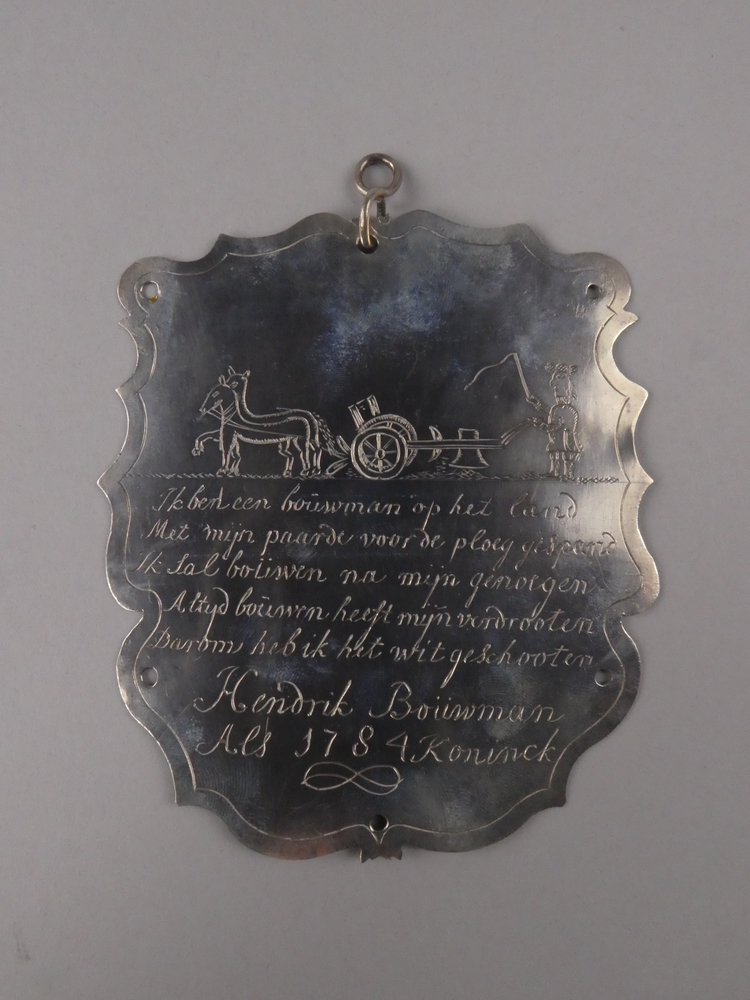 Ik ben een boüwman op het land
Met mijn paarde voor de ploeg gespand
Ik Sal boüwen na mijn genoegen
Altyd boüwen heeft mijn verdrooten
Darom heb ik het wit geschooten
Hendrik Boüwman
Als 1784 Koninck